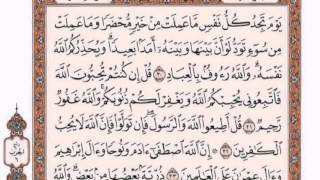 يَوْمَ تَجِدُ كُلُّ نَفْسٍ مَّا عَمِلَتْ مِنْ خَيْرٍ مُّحْضَرًا وَمَا عَمِلَتْ
مِن سُوٓءٍ تَوَدُّ لَوْ أَنَّ بَيْنَهَا وَبَيْنَهُۥٓ أَمَدًۢا بَعِيدًا ۗ وَيُحَذِّرُكُمُ ٱللَّهُ
نَفْسَهُۥ ۗ وَٱللَّهُ رَءُوفٌۢ بِٱلْعِبَادِ ٣٠ قُلْ إِن كُنتُمْ تُحِبُّونَ ٱللَّهَ
فَٱتَّبِعُونِى يُحْبِبْكُمُ ٱللَّهُ وَيَغْفِرْ لَكُمْ ذُنُوبَكُمْ ۗ وَٱللَّهُ غَفُورٌ
رَّحِيمٌ ٣١ قُلْ أَطِيعُوا۟ ٱللَّهَ وَٱلرَّسُولَ ۖ فَإِن تَوَلَّوْا۟ فَإِنَّ ٱللَّهَ لَا يُحِبُّ
ٱلْكَٰفِرِينَ ٣٢ إِنَّ ٱللَّهَ ٱصْطَفَىٰٓ ءَادَمَ وَنُوحًا وَءَالَ إِبْرَٰهِيمَ
وَءَالَ عِمْرَٰنَ عَلَى ٱلْعَٰلَمِينَ ٣٣ ذُرِّيَّةًۢ بَعْضُهَا مِنۢ بَعْضٍ ۗ وَٱللَّهُ